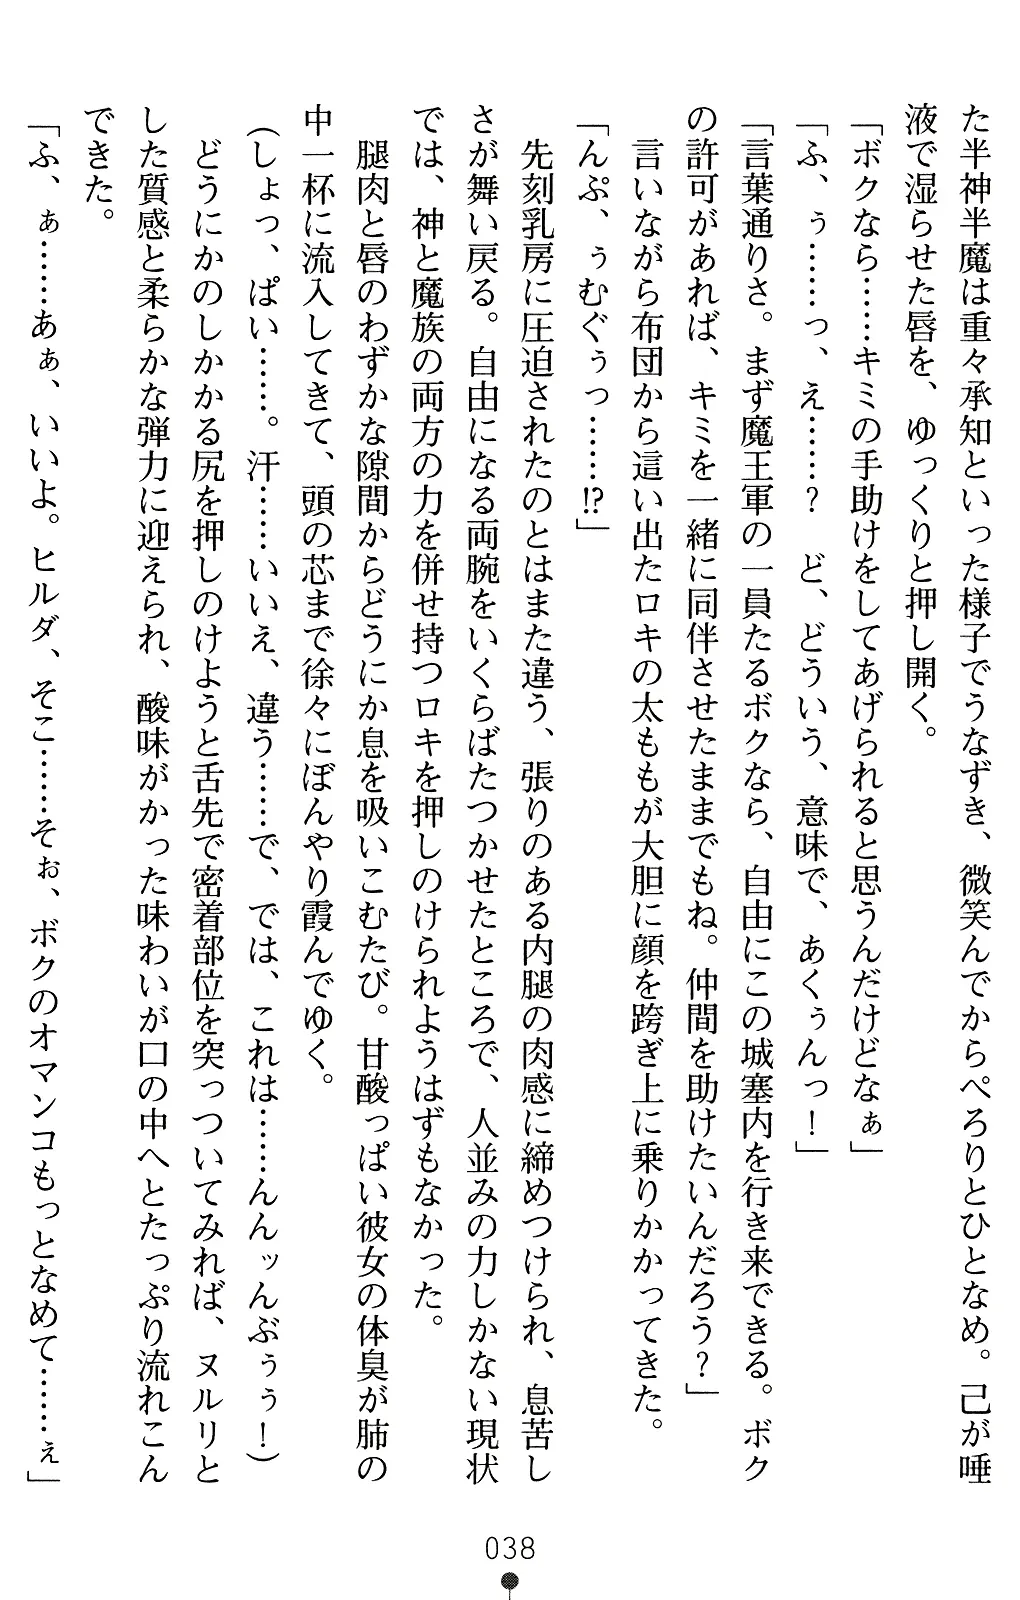 た半神半魔は重々承知といった様子でうなずき、微笑んでからぺろりとひとなめ。己が唾
液で湿らせた唇を、ゆっくりと押し開く。
「ボクなら……キミの手助けをしてあげられると思うんだけどなぁ」
「ふ、ぅ……っ、え……？　ど、どういう、意味で、あくぅんっ！」
「言葉通りさ。まず魔王軍の一員たるボクなら、自由にこの城塞内を行き来できる。ボク
の許可があれば、キミを一緒に同伴させたままでもね。仲間を助けたいんだろう？」
　言いながら布団から這い出たロキの太ももが大胆に顔を跨ぎ上に乗りかかってきた。
「んぷ、ぅむぐぅっ……⁉」
　先刻乳房に圧迫されたのとはまた違う、張りのある内腿の肉感に締めつけられ、息苦し
さが舞い戻る。自由になる両腕をいくらばたつかせたところで、人並みの力しかない現状
では、神と魔族の両方の力を併せ持つロキを押しのけられようはずもなかった。
　腿肉と唇のわずかな隙間からどうにか息を吸いこむたび。甘酸っぱい彼女の体臭が肺の
中一杯に流入してきて、頭の芯まで徐々にぼんやり霞んでゆく。
（しょっ、ぱい……。汗……いいえ、違う……で、では、これは……んんッんぶぅぅ！）
　どうにかのしかかる尻を押しのけようと舌先で密着部位を突っついてみれば、ヌルリと
した質感と柔らかな弾力に迎えられ、酸味がかった味わいが口の中へとたっぷり流れこん
できた。
「ふ、ぁ……あぁ、いいよ。ヒルダ、そこ……そぉ、ボクのオマンコもっとなめて……ぇ」
038